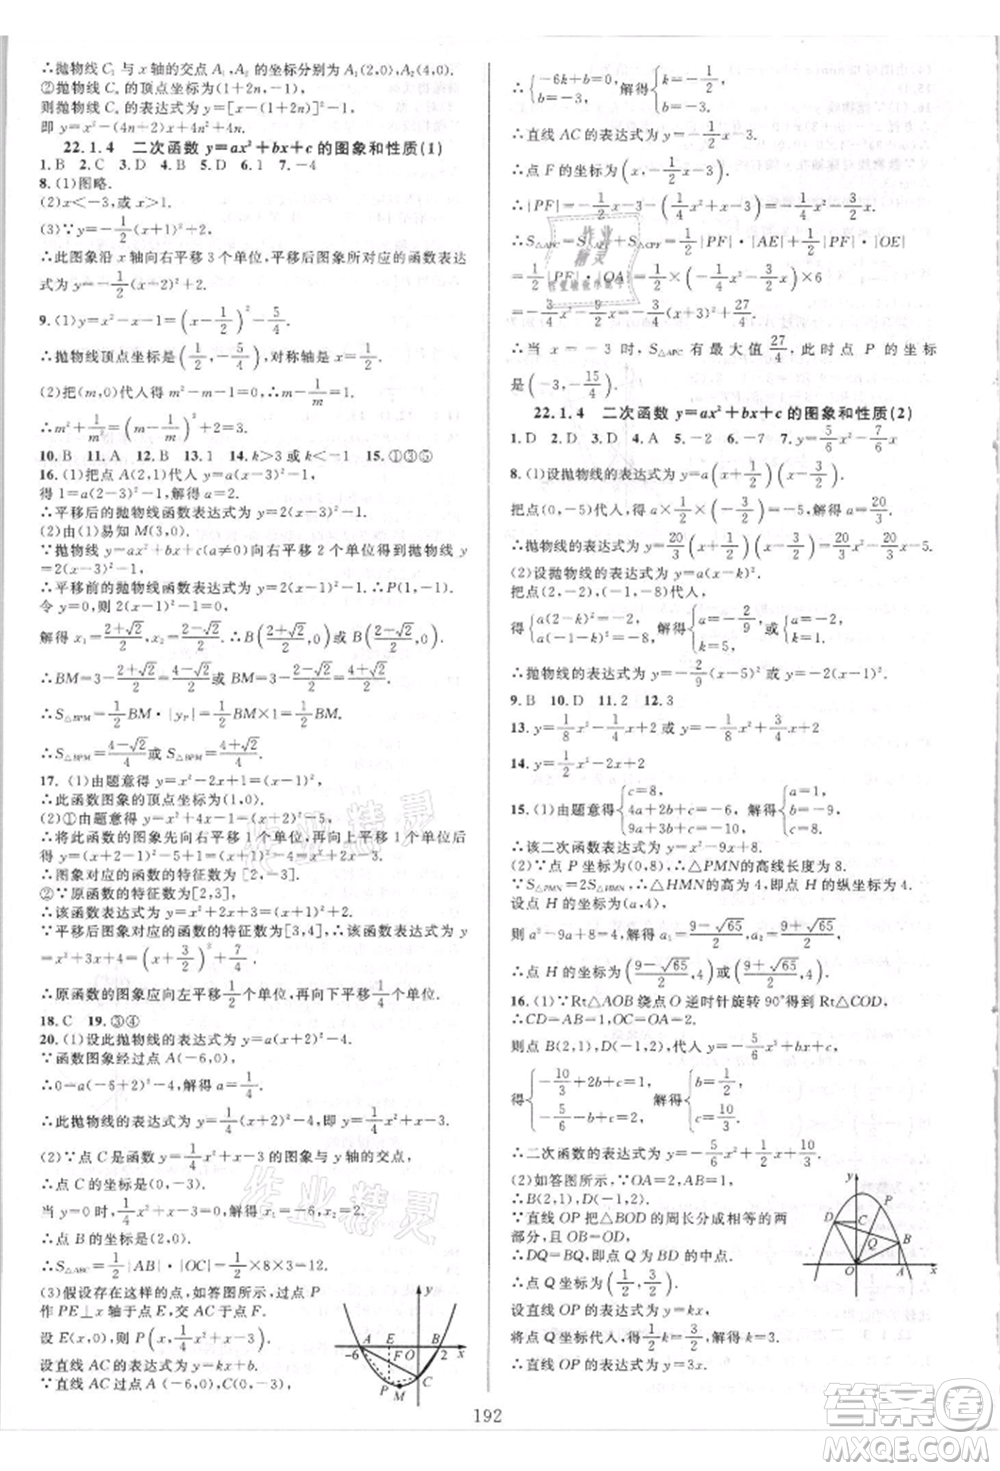 ∴抛物线 C₂ 与 x 轴的交点 A₁,A₂ 的坐标分别为 A₁(2,0),A₂(4,0).
②抛物线 Cₙ 的顶点坐标为(1+2n,-1),
则抛物线 Cₙ 的表达式为 y=[x-(1+2n)]²-1,
即 y=x²-(4n+2)x+4n²+4n.
22.1.4 二次函数 y=ax²+bx+c 的图象和性质(1)
1.B 2.C 3.D 4.B 5.D 6.1 7.-4
8.(1)图略.
(2)x<-3,或 x>1.
(3)∵y=-1/2x²-x+3/2=-1/2(x+1)²+2,
∴此图象沿 x 轴向右平移 3 个单位,平移后图象所对应的函数表达
式为 y=-1/2(x-2)²+2.
9.(1)y=x²-x-1=(x-1/2)²-5/4.
∴抛物线顶点坐标是(1/2,-5/4),对称轴是 x=1/2.
(2)把(m,0)代入得 m²-m-1=0,∴m-1/m=1.
∴m²+1/m²=(m-1/m)²+2=1²+2=3.
10.B 11.A 12.B 13.1 14.k>3 或 k<1 15.①③⑤
16.(1)把点 A(2,1)代入 y=a(x-3)²-1,
得 1=a(2-3)²-1,解得 a=2.
∴平移后的抛物线函数表达式为 y=2(x-3)²-1.
(2)由(1)易知 M(3,0).
∵抛物线 y=ax²+bx+c(a≠0)向右平移 2 个单位得到抛物线 y
=2(x-3)²-1,
∴平移前的抛物线函数表达式为 y=2(x-1)²-1.∴P(1,-1).
令 y=0,得 2(x-1)²-1=0.
解得 x₁=(2+√2)/2,x₂=(2-√2)/2.∴B((2+√2)/2,0)或 B((2-√2)/2,0).
∴BM=3-(2+√2)/2=(4-√2)/2或 BM=3-(2-√2)/2=(4+√2)/2.
∴S△BPM=1/2BM·|yP|=1/2BM×1=1/2BM.
∴S△BPM=(4-√2)/4或 S△BPM=(4+√2)/4.
17.(1)由题意得 y=x²-2x+1=(x-1)².
∴此函数图象的顶点坐标为(1,0).
(2)①由题意得 y=x²+4x-1=(x+2)²-5,
∴将此函数的图象先向右平移 1 个单位,再向上平移 1 个单位后
得 y=(x+2-1)²-5+1=(x+1)²-4=x²+2x-3.
∴图象对应的函数的特征数为[2,-3].
②∵原函数的特征数为[2,3],
∴该函数表达式为 y=x²+2x+3=(x+1)²+2.
∵平移后图象对应的函数的特征数为[3,4],∴该函数表达式为 y
=x²+3x+4=(x+3/2)²+7/4.
∴原函数的图象应向左平移1/2个单位,再向下平移1/4个单位.
18.C 19.③④
20.(1)设此抛物线的函数表达式为 y=a(x+2)²-4.
∵函数图象经过点 A(-6,0),
∴0=a(-6+2)²-4,解得 a=1/4.
∴此抛物线的表达式为 y=1/4(x+2)²-4=1/4x²+x-3.
(2)∵点 C 是函数 y=1/4x²+x-3 的图象与 y 轴的交点,
∴点 C 的坐标是(0,-3).
当 y=0 时,有1/4x²+x-3=0,解得 x₁=-6,x₂=2,
∴点 B 的坐标是(2,0).
∴S△ABC=1/2|AB|·|OC|=1/2×8×3=12.
(3)假设存在这样的点,如答图,过点 P
作 PE⊥x 轴于点 E,交 AC 于点 F.
设 E(x,0),则 P(x,1/4x²+x-3),
设直线 AC 的表达式为 y=kx+b.
∵直线 AC 过点 A(-6,0),C(0,-3),
y
A E B
-6 F O 2 x
C
P M
∴{-6k+b=0, b=-3, 解得{k=-1/2, b=-3.
∴直线 AC 的表达式为 y=-1/2x-3,
∴点 F 的坐标为 (x,-1/2x-3),
∴|PF|=-1/2x-3-(1/4x²+x-3)=-1/4x²-3/2x,
∴S△APC=S△APF+S△CPF=1/2|PF|·|AE|+1/2|PF|·|OE|
=1/2|PF|·|OA|=1/2×(-1/4x²-3/2x)×6
=-3/4x²-9/2x=-3/4(x+3)²+27/4.
∴当 x=-3 时,S△APC 有最大值27/4,此时点 P 的坐标
是(-3,-15/4).
22.1.4 二次函数 y=ax²+bx+c 的图象和性质(2)
1.D 2.D 3.D 4.A 5.-1 6.-7 7.y=5/6x²-7/6x
8.(1)设抛物线的表达式为 y=a(x-1/2)(x+3/2).
把点(0,-5)代入,得 a×(-1/2)×3/2=-5,解得 a=20/3,
∴抛物线的表达式为 y=20/3(x-1/2)(x+3/2)=20/3x²+20/3x-5.
(2)设抛物线的表达式为 y=a(x-k)².
把点(2,-2),(-1,-8)代入,
得{a(2-k)²=-2, a(-1-k)²=-8, 解得{a=-2/9, k=5, 或{a=-2, k=1.
∴抛物线的表达式为 y=-2/9(x-5)²或 y=-2(x-1)².
9.B 10.D 11.2 12.3
13.y=1/8x²-1/4x 或 y=-1/8x²+3/4x
14.y=1/2x²+2x
15.(1)由题意得{c=8, 4a+2b+c=-6, 9a+3b+c=-10, 解得{a=1, b=-9, c=8.
∴该二次函数表达式为 y=x²-9x+8.
(2)∵点 P 坐标为(0,8),∴△PMN 的高线长度为 8.
∵S△PMN=2S△HMN,∴△HMN 的高为 4,即点 H 的纵坐标为 4.
设点 H 的坐标为(a,4),
则 a²-9a+8=4,解得 a₁=(9-√65)/2,a₂=(9+√65)/2,
∴点 H 的坐标为((9-√65)/2,4)或((9+√65)/2,4).
16.(1)∵Rt△AOB 绕点 O 逆时针旋转 90°得到 Rt△COD,
∴CD=AB=1,OC=OA=2.
则点 B(2,1),D(-1,2),代入 y=-5/6x²+bx+c,
得{-10/3+2b+c=1, -5/6-b+c=2, 解得{b=1/2, c=10/3.
∴二次函数的表达式为 y=-5/6x²+1/2x+10/3.
(2)如答图所示,∵OA=2,AB=1,
∴B(2,1),D(-1,2).
∵直线 OP 把△BOD 的周长分成相等的两
部分,且 OB=OD,
∴DQ=BQ,即点 Q 为 BD 的中点.
∴点 Q 坐标为(1/2,3/2).
设直线 OP 的表达式为 y=kx,
将点 Q 坐标代入,得1/2k=3/2,解得 k=3,
∴直线 OP 的表达式为 y=3x.
y P
D C
Q B
O A x
192
作业精灵
作业精灵
作业精灵
答案圈
MXQE.COM